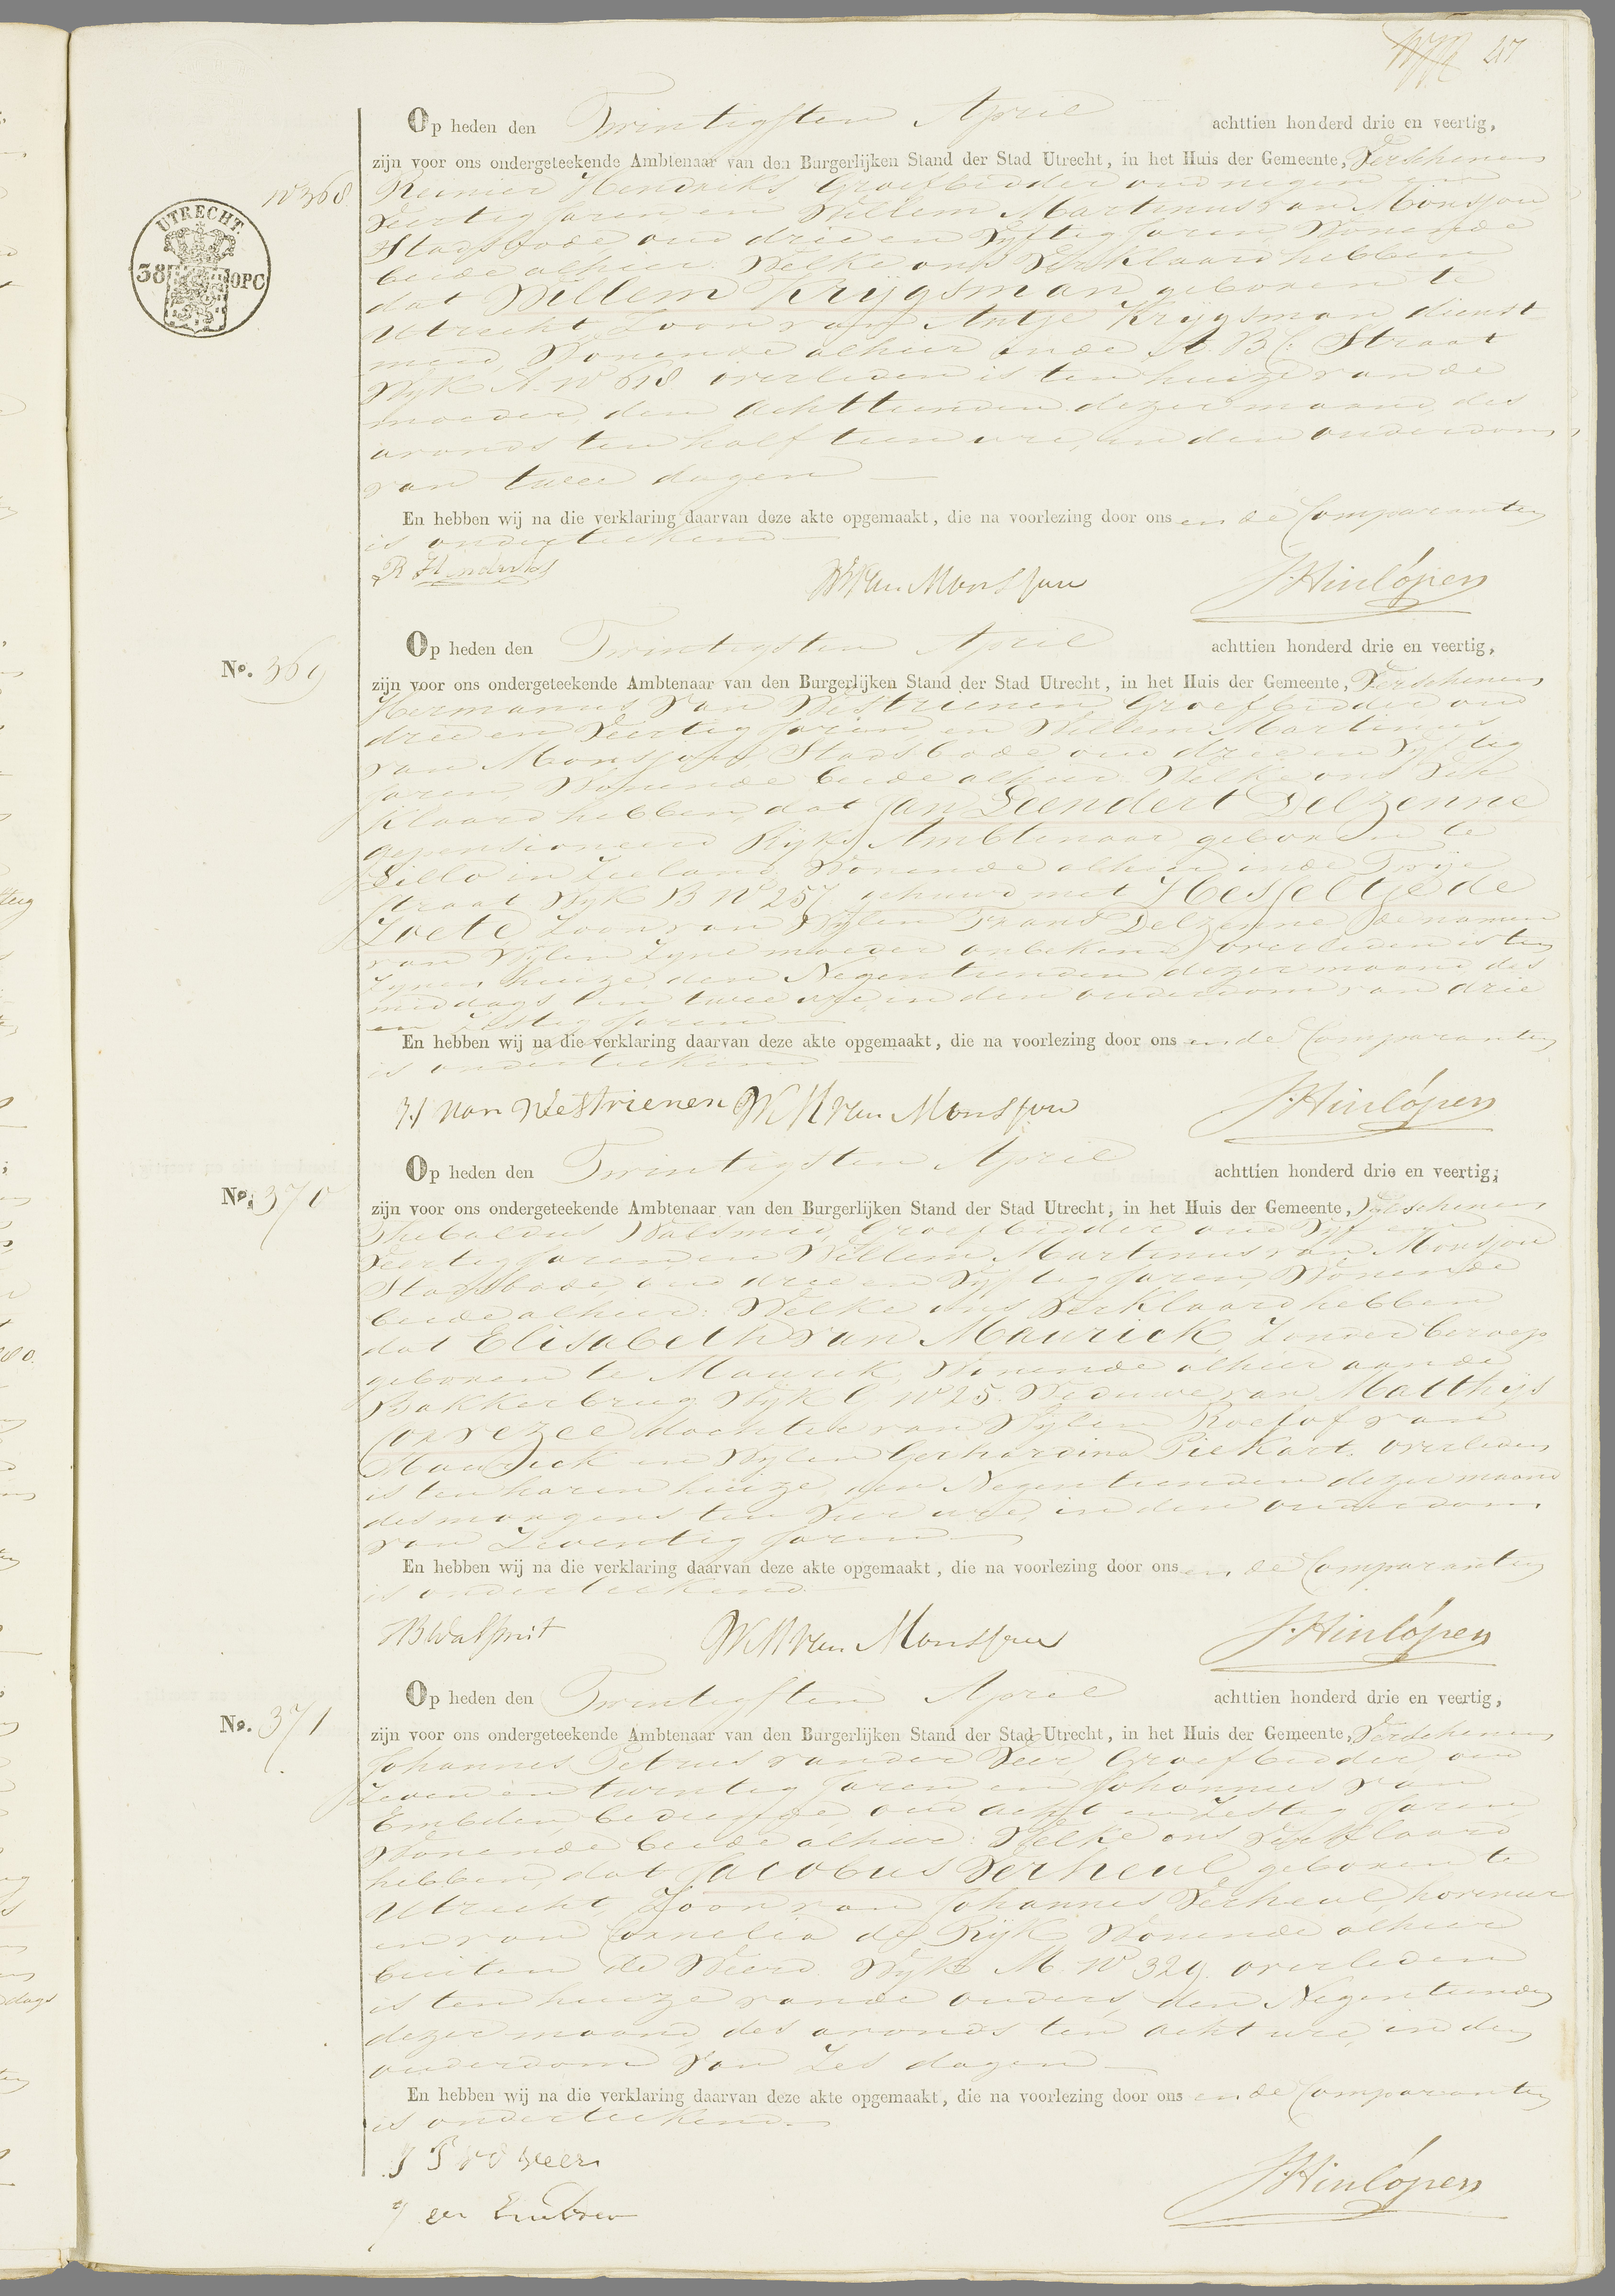 47
Op heden den Twintigsten April achttien honderd drie en veertig,
zijn voor ons ondergeteekende Ambtenaar van den Burgerlijken Stand der Stad Utrecht, in het Huis der Gemeente, Verschenen
No 368
Reinier Hendriks, Groefbidder oud negen en
Veertig jaren en Willem Martinus van Monsjou
Stadsbode oud drie en Vyftig jaren, Wonende
beide alhier. Welke ons Verklaard hebben
UTRECHT.
38 OPC
dat Willem Krygsman geboren te
Utrecht, Zoon van Antje Krygsman dienst
meid, Wonende alhier in de A. B C: Straat
Wyk A. No 618 overleden is ten huize van de
moeder, den achttienden dezer maand des
avonds ten half tien ure, in den ouderdom
van twee dagen
En hebben wij na die verklaring daarvan deze akte opgemaakt, die na voorlezing door ons en de Comparanten
is onderteekend
R Hendriks WM van Monsjou J. Hinlópen
Op heden den Twintigsten April achttien honderd drie en veertig,
No. 369
zijn voor ons ondergeteekende Ambtenaar van den Burgerlijken Stand der Stad Utrecht, in het Huis der Gemeente, Verschenen
Hermanus Van Westrienen Groefbidder oud
drie en Veertig jaren, en Willem Martinus
van Monsjou, Stadsbode oud drie en Vyftig
jaren, Wonende beide alhier. Welke ons Ver
Klaard hebben, dat Jan Leendert Delzenne
gepensioneerd Ryks Ambtenaar geboren te
Lillo in Zeeland, Wonende alhier in de
straat Wyk B No 257. gehuwd met Hesseltje de
Zoete, Zoon van Wylen Frans Delzenne (de namen
van Wylen Zyne moeder onbekend) overleden is ten
Zynen huize, den Negentienden dezer maand des
middags ten twee ure, in den ouderdom van drie
en Zestig jaren
En hebben wij na die verklaring daarvan deze akte opgemaakt, die na voorlezing door ons en de Comparanten
is onderteekend
H Van Westrienen WM van Monsjou J. Hinlópen
Op heden den Twintigsten April achttien honderd drie en veertig;
No. 370
zijn voor ons ondergeteekende Ambtenaar van den Burgerlijken Stand der Stad Utrecht, in het Huis der Gemeente, Verschenen
Walsmit, Groefbidder oud Vyf en
Veertig jaren en Willem Martinus van Monsjou
Stadsbode, oud drie en Vyftig jaren, Wonende
beide alhier: Welke ons Verklaard hebben
dat Elisabeth van Maurick, Zonder beroep
geboren te Maurik, Wonende alhier aan de
Bakkerbrug Wyk C No 25. Weduwe van Matthys
Corvezee dochter van Wylen Roelof van
Maurick en Wylen Gerhardina Piekart. overleden
is ten haren huize, den Negentienden dezer maand
des morgens ten Vier ure, in den ouderdom
van Zeventig jaren
En hebben wij na die verklaring daarvan deze akte opgemaakt, die na voorlezing door ons en de Comparanten
is onderteekend
Walsmit WM van Monsjou J. Hinlópen
Op heden den Twintigsten April achttien honderd drie en veertig,
No. 371
zijn voor ons ondergeteekende Ambtenaar van den Burgerlijken Stand der Stad Utrecht, in het Huis der Gemeente, Verschenen
Johannes Petrus van der Veer, Groefbidder, oud
Zeven en twintig jaren en Johannes van
Embden, bediende, oud acht en Zestig jaren
Wonende beide alhier: Welke ons Verklaard
hebben, dat Jacobus Verheul, geboren te
Utrecht, Zoon van Johannes Verheul, hovenier
en van Cornelia de Ryk, Wonende alhier
buiten de Weerd Wyk M. No 329. overleden
is ten huize van de ouders, den Negentienden
dezer maand, des avonds ten acht ure, in den
ouderdom van Zes dagen
En hebben wij na die verklaring daarvan deze akte opgemaakt, die na voorlezing door ons en de Comparanten
is onderteekend
J P v d Veer
J. Hinlópen
J van Embden